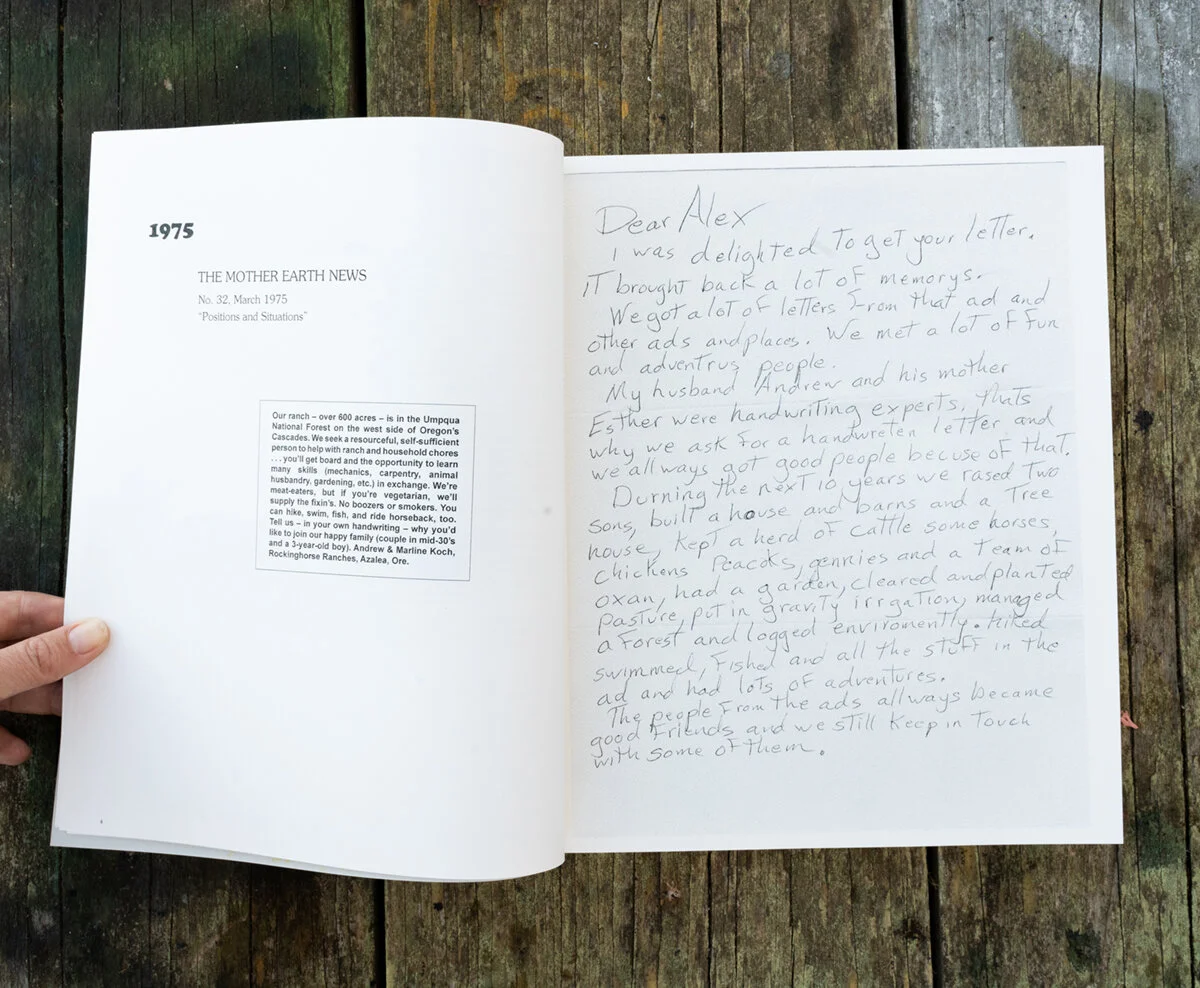 1975
THE MOTHER EARTH NEWS
No. 32, March 1975
“Positions and Situations”
Our ranch – over 600 acres – is in the Umpqua
National Forest on the west side of Oregon's
Cascades. We seek a resourceful, self-sufficient
person to help with ranch and household chores
. . . you'll get board and the opportunity to learn
many skills (mechanics, carpentry, animal
husbandry, gardening, etc.) in exchange. We're
meat-eaters, but if you're vegetarian, we'll
supply the fixin's. No boozers or smokers. You
can hike, swim, fish, and ride horseback, too.
Tell us – in your own handwriting – why you'd
like to join our happy family (couple in mid-30's
and a 3-year-old boy). Andrew & Marline Koch,
Rockinghorse Ranches, Azalea, Ore.
Dear Alex
I was delighted to get your letter.
it brought back a lot of memorys.
We got a lot of letters from that ad and
other ads and places. We met a lot of fun
and adventrus people.
My husband Andrew and his mother
Esther were handwriting experts, thats
why we ask for a handwreten letter and
we allways got good people becuse of that.
Durning the next 10 years we rased two
sons, built a house and barns and a tree
house, kept a herd of cattle some horses,
chickens peacoks, gennies and a team of
oxan, had a garden, cleared and planted
pasture, put in gravity irrgation, managed
a forest and logged enviromently. hiked
swimmed, fished and all the stuff in the
ad and had lots of adventures.
The people from the ads allways became
good friends and we still keep in touch
with some of them.